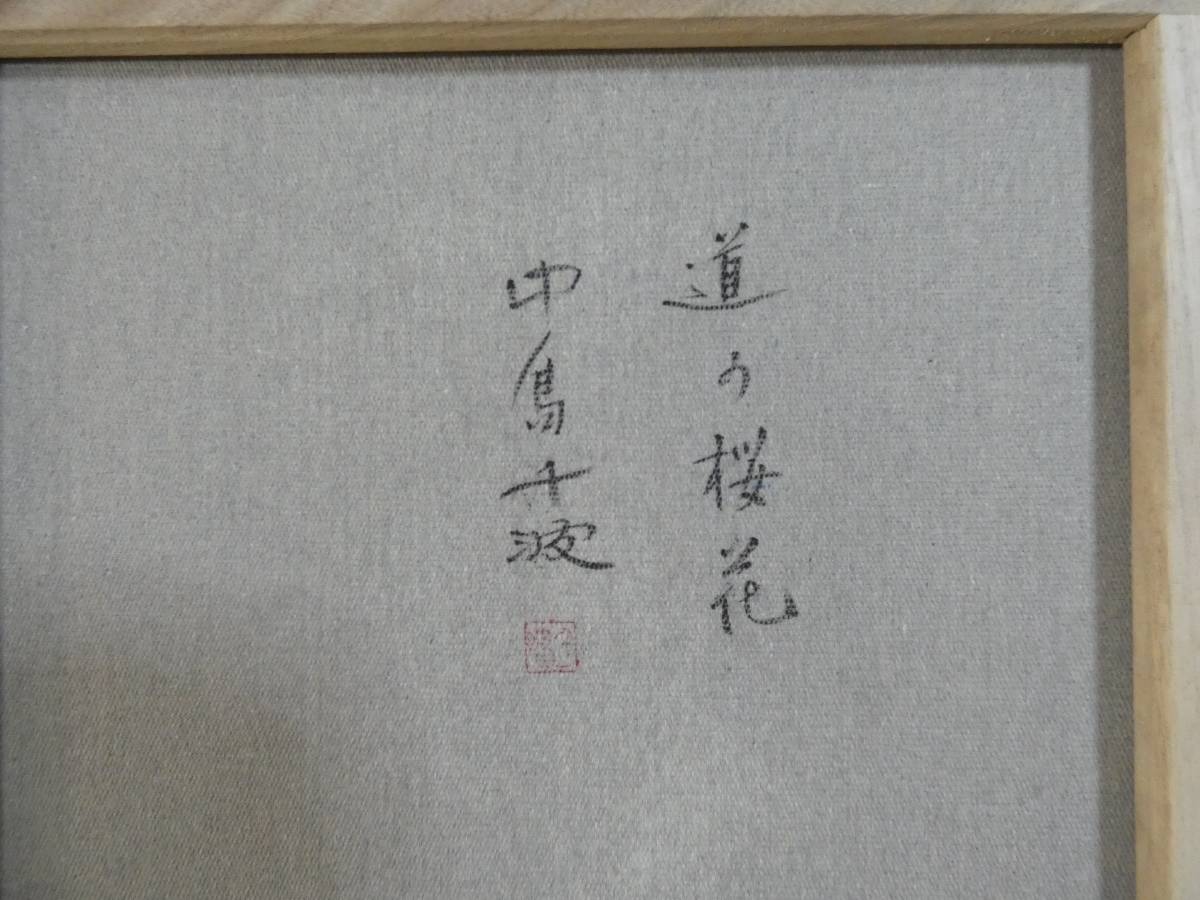 道の桜花
中島千波